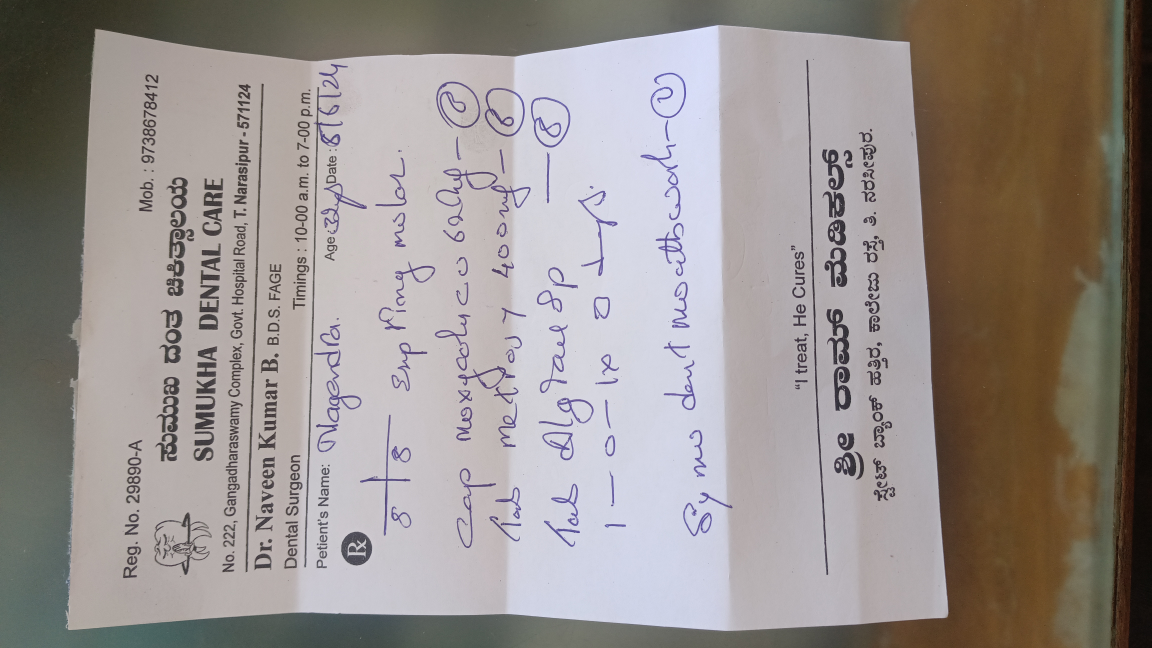 Reg. No. 29890-A Mob. : 9738678412
ಸುಮುಖ ದಂತ ಚಿಕಿತ್ಸಾಲಯ
SUMUKHA DENTAL CARE
No. 222, Gangadharaswamy Complex, Govt. Hospital Road, T.Narasipur - 571124
Dr. Naveen Kumar B. B.D.S. FAGE
Dental Surgeon Timings : 10-00 a.m. to 7-00 p.m.
Petient's Name: Nagendra. Age Date : 8/6/24
Rx
8 8 molar.
Cap 625mg - 8
Tab 400mg - 8
Tab SP - 8
1 - 0 - 1 x
mouthwash - 1
"I treat, He Cures"
ಶ್ರೀ ರಾಮ್ ಮೆಡಿಕಲ್ಸ್
ಸ್ಟೇಟ್ ಬ್ಯಾಂಕ್ ಹತ್ತಿರ, ಕಾಲೇಜು ರಸ್ತೆ, ತಿ. ನರಸೀಪುರ.